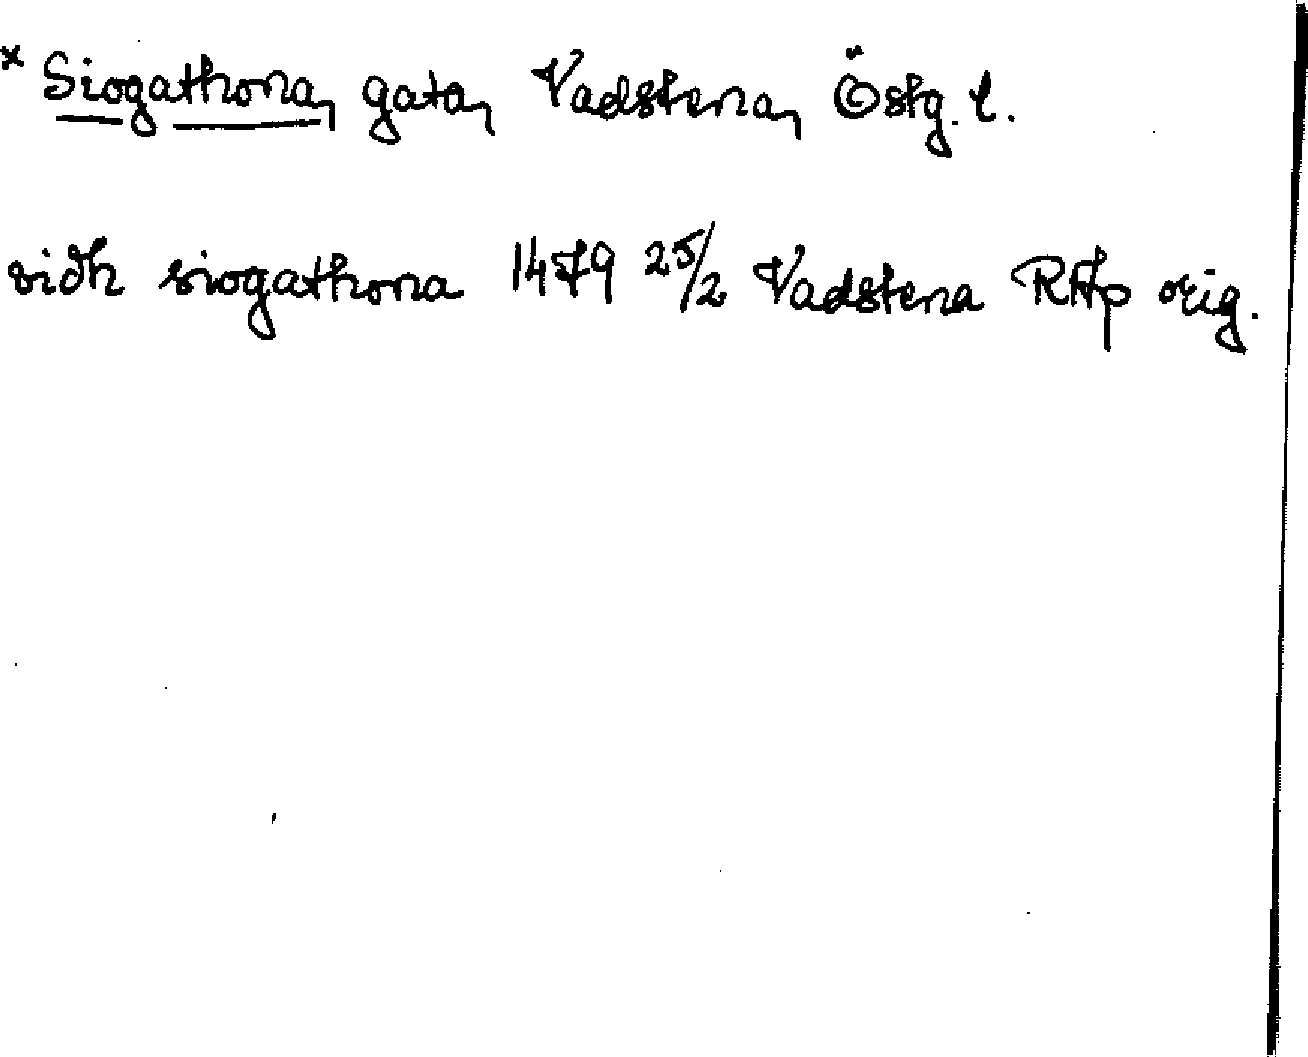 * Siogathona, gata, Vadstena, Östg. l.
vidh siogathona 1479 25/2 Vadstena RAp orig.